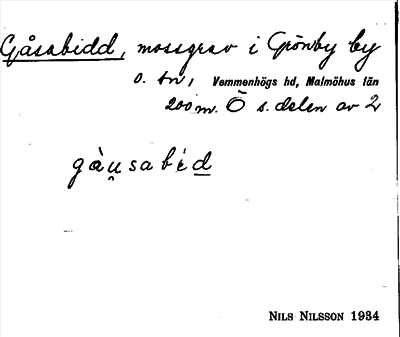 Gåsabidd, mossgrav i Grönby by
o. sn, Vemmenhögs hd, Malmöhus län
200 m. Ö s. delen av 2
gàu̯sabíd
NILS NILSSON 1934